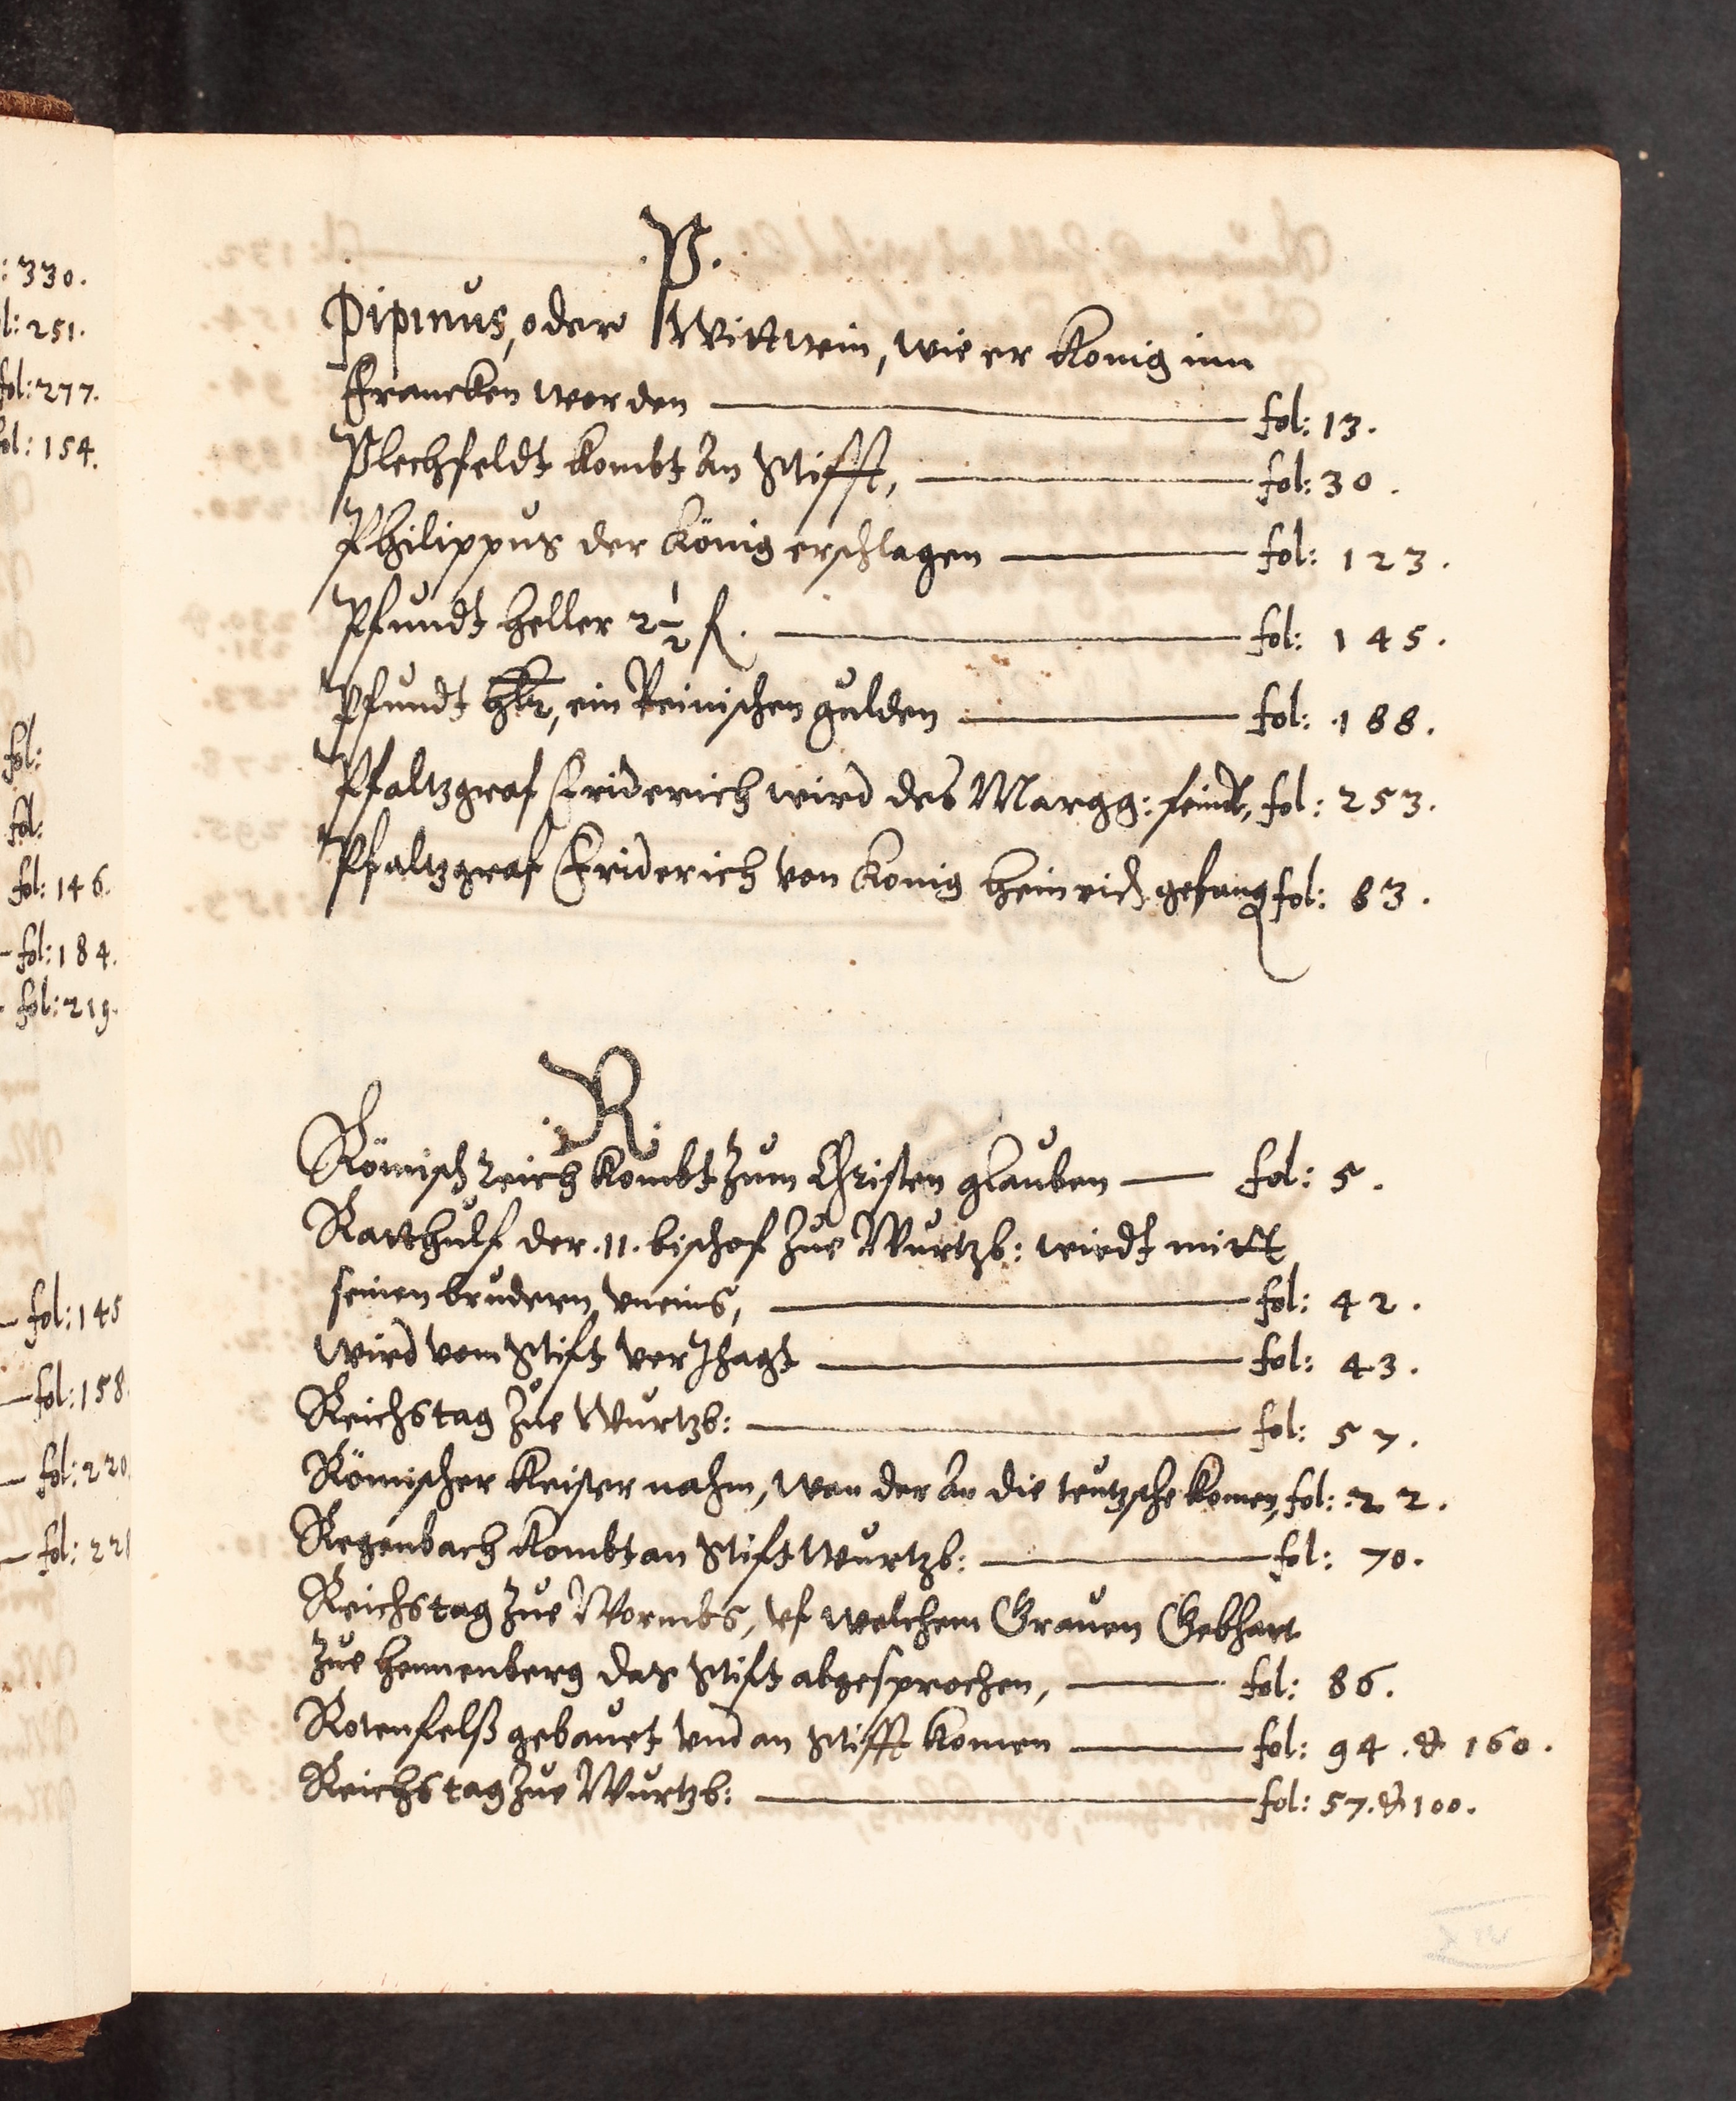 : 330.
l: 251.
fol: 277.
ol: 154.
fol:
fol:
fol: 146.
fol: 184.
fol: 219.
fol: 145
fol: 158.
fol: 220.
fol: 221
.P.
Pipinus, oder Wittwin, wie er König inn
Francken worden fol: 13.
Plechfeldt kombt an Stifft, fol: 30.
Philippus der König erschlagen fol: 123.
Pfundt heller 2½ fl. fol: 145.
Pfundt hlr, ein Reinischen gulden fol: 188.
Pfaltzgraf Friderich wird des Margg: feindt, fol: 253.
Pfaltzgraf Friderich von König Heinrich gefang fol: 83.
.R.
Römisch reich kombt zum Christen glauben fol: 5.
Ratthulf der .11. bischof zue Wurtzb: wirdt mitt
seinen brudern uneins, fol: 42.
wird vom Stift verJhagt fol: 43.
Reichstag zue Wurtzb: fol: 57.
Römischer Keiser nahm, wan der an die teutzsche komen, fol: 22.
Regenbach kombt an Stift Wurtzb: fol: 70.
Reichstag zue Wormbs, uf welchem Grauen Gebhart
zue Hennenberg das Stift abgesprochen, fol: 86.
Rotenfelß gebauet und an Stifft komen fol: 94. & 160.
Reichstag zue Wurtzb: fol: 57. & 100.